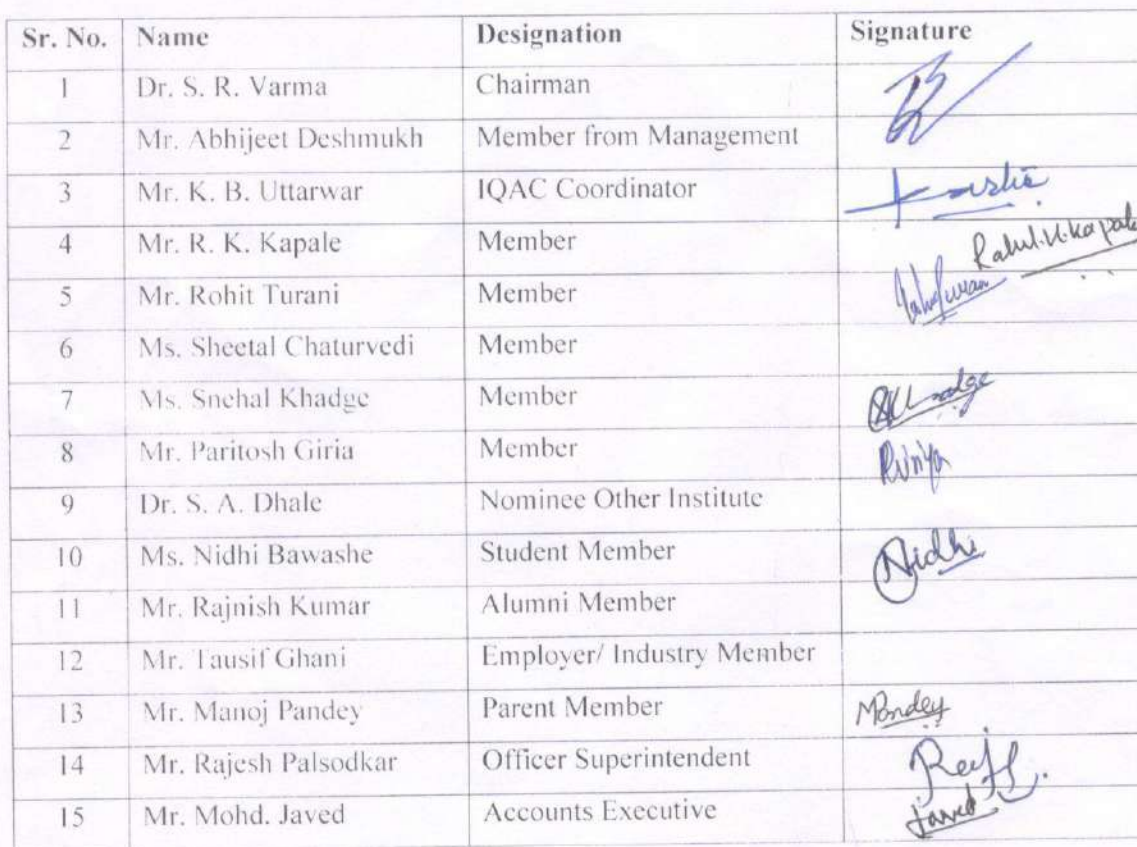 Sr. No. Name Designation Signature
1 Dr. S. R. Varma Chairman
2 Mr. Abhijeet Deshmukh Member from Management
3 Mr. K. B. Uttarwar IQAC Coordinator
4 Mr. R. K. Kapale Member Rahul.K.Kapale
5 Mr. Rohit Turani Member
6 Ms. Sheetal Chaturvedi Member
7 Ms. Snehal Khadge Member SKhadge
8 Mr. Paritosh Giria Member
9 Dr. S. A. Dhale Nominee Other Institute
10 Ms. Nidhi Bawashe Student Member Nidhi
11 Mr. Rajnish Kumar Alumni Member
12 Mr. Tausif Ghani Employer/ Industry Member
13 Mr. Manoj Pandey Parent Member MPandey
14 Mr. Rajesh Palsodkar Officer Superintendent
15 Mr. Mohd. Javed Accounts Executive Javed